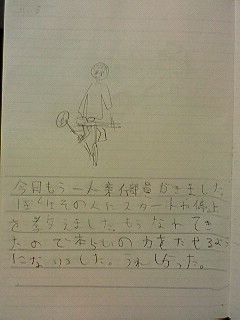 今日もう一人乗組員がきました。
ぼくはその人にスタートや停止
を教えました。もうなれてき
たので本らいの力をだせるよう
になりました。うれしかった。